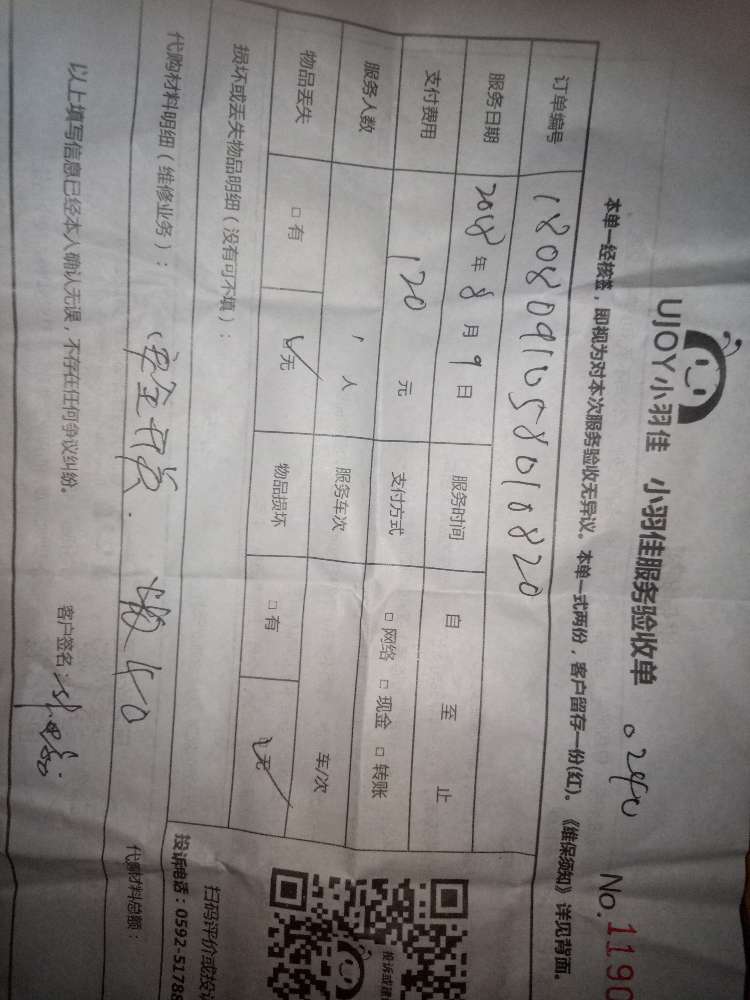 UJOY小羽佳 小羽佳服务验收单
No.1190
本单一经核签，即视为对本次服务验收无异议。本单一式两份，客户留存一份(红)。《维保须知》详见背面。
订单编号 180809105801820
服务日期 2018年8月9日 服务时间 自 至 止
支付费用 120元 支付方式 □ 网络 □ 现金 □ 转账
服务人数 1人 服务车次 车/次
物品丢失 □有 □无 物品损坏 □有 □无
损坏或丢失物品明细（没有可不填）：
扫码评价或投
投诉或建
代购材料明细（维修业务）：
投诉电话：0592-51788
代购材料总额：
以上填写信息已经本人确认无误，不存在任何争议纠纷。
客户签名：